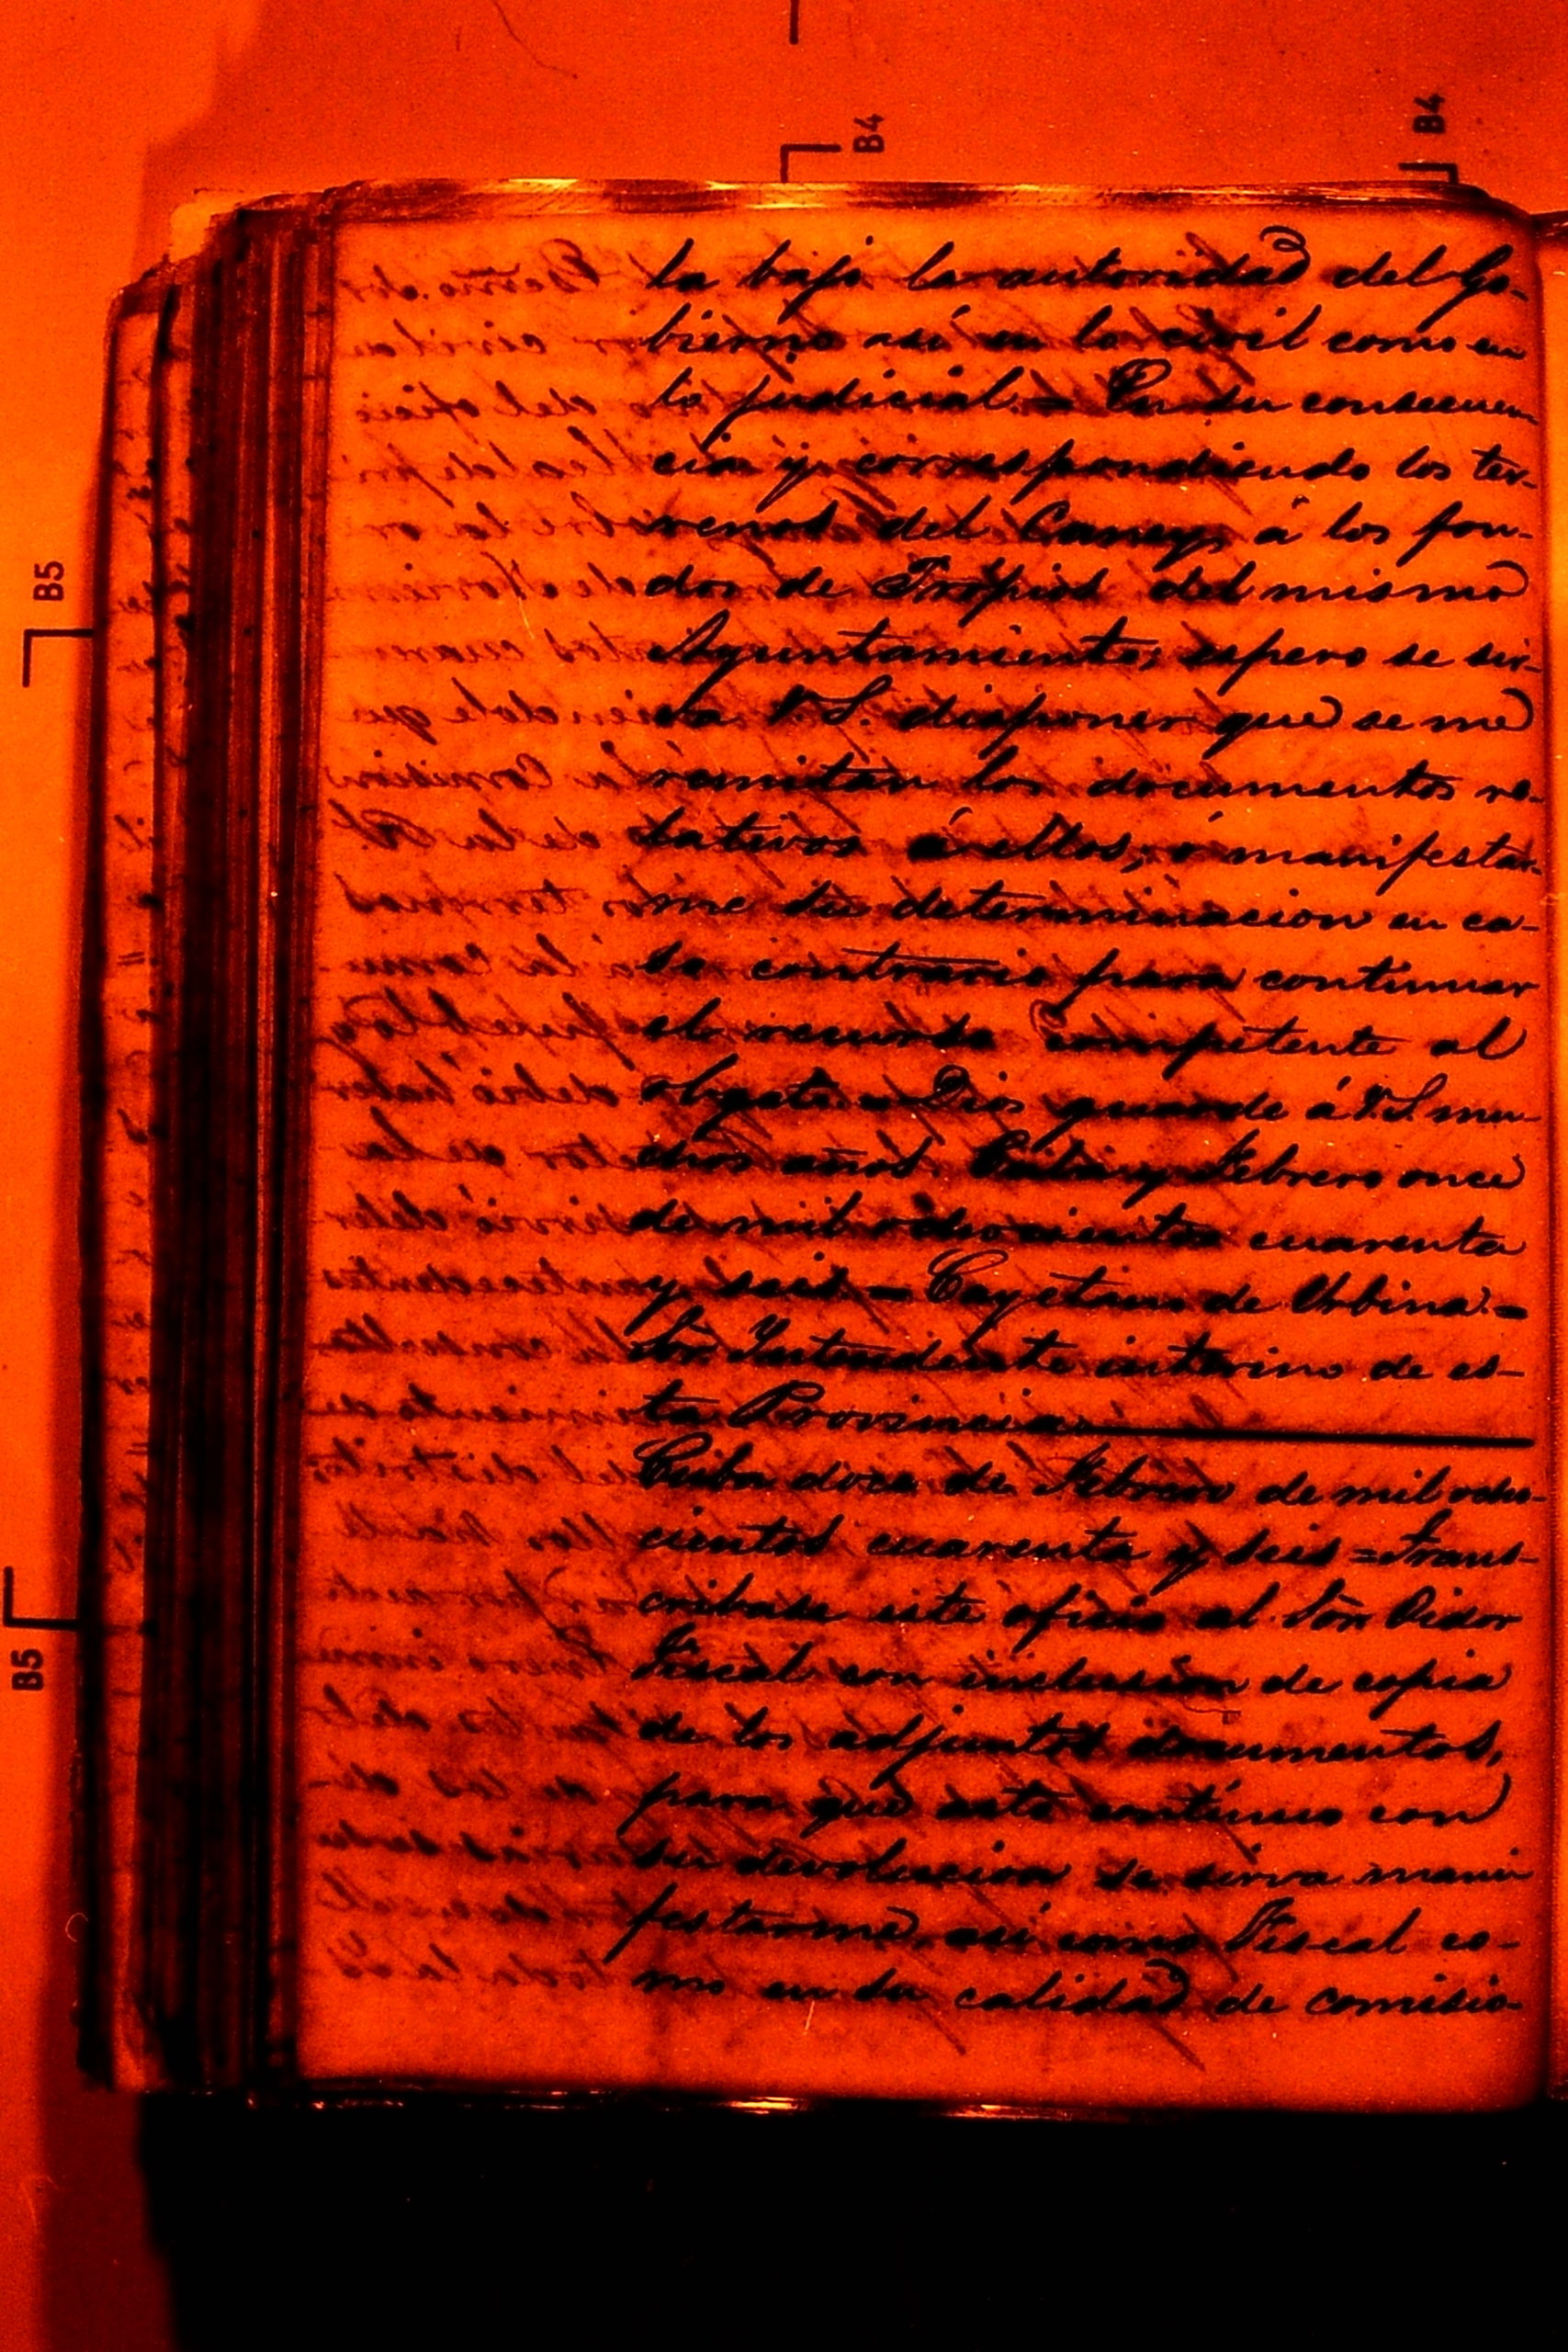 B4
B4
B5
B5
la bajo la autoridad del Go-
bierno asi en lo civil como en
lo judicial. = En su consecuen
cia y correspondiendo los ter-
renos del Caney, á los fon-
dos de Propios del mismo
Ayuntamiento, espero se sir-
va V.S. disponer que se me
remitan los documentos re-
lativos á ellos, ó manifestar-
me su determinacion en ca-
so contrario para continuar
el recurso competente al
objeto = Dios guarde á V.S. mu
chos años. Cuba y Febrero once
de mil ochocientos cuarenta
y seis = Cayetano de Urbina =
Sõr Intendente interino de es-
ta Provincia
Cuba doce de Febrero de mil ocho-
cientos cuarenta y seis = Trans-
cribase este oficio al Sõr Oidor
Fiscal con inclusion de copia
de los adjuntos documentos,
para que con
su devolucion se sirva mani
festarme, asi como Fiscal co-
mo en su calidad de comisio-